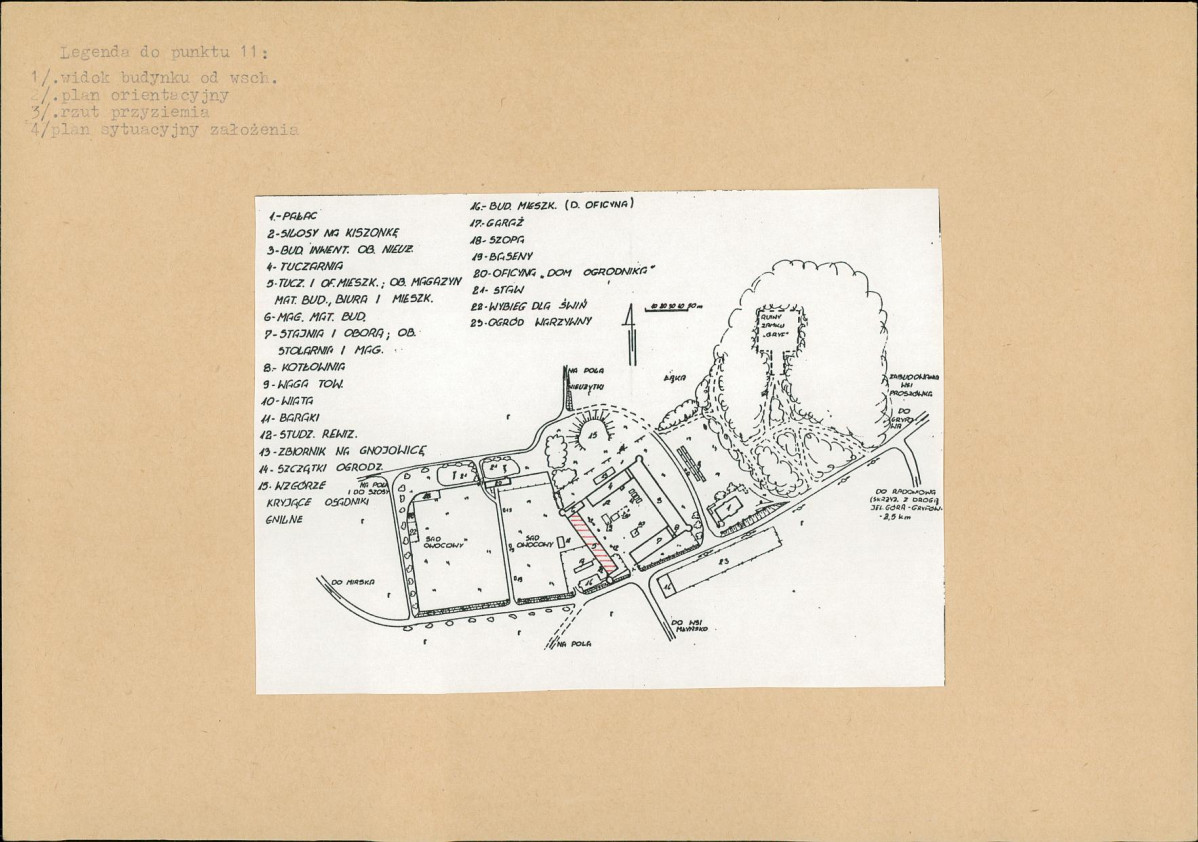 Legenda do punktu 11:
1/.widok budynku od wsch.
2/.plan orientacyjny
3/.rzut przyziemia
4/plan sytuacyjny założenia
1.-PAŁAC
2-SILOSY NA KISZONKĘ
3-BUD. INWENT. OB. NIEUŻ.
4- TUCZARNIA
5-TUCZ. I OF. MIESZK.; OB. MAGAZYN
MAT. BUD., BIURA I MIESZK.
6-MAG. MAT. BUD.
7-STAJNIA I OBORA; OB.
STOLARNIA I MAG.
8.- KOTŁOWNIA
9-WAGA TOW.
10-WIATA
11-BARAKI
12-STUDZ. REWIZ.
13-ZBIORNIK NA GNOJOWICĘ
14-SZCZĄTKI OGRODZ.
15-WZGÓRZE
KRYJĄCE OSADNIKI
GNILNE
16.-BUD. MIESZK. (D. OFICYNA)
17-GARAŻ
18-SZOPA
19-BASENY
20-OFICYNA „DOM OGRODNIKA"
21-STAW
22-WYBIEG DLA ŚWIŃ
23-OGRÓD WARZYWNY
RUINY
ZAMKU
„GRYF"
NA POLA
NIEUŻYTKI
ŁĄKA
ZABUDOWANIA
WSI
PROSZÓWKA
DO
GRYFO
WA
DO RADONIOWA
(SKRZYŻ. Z DROGĄ
JEL. GÓRA-GRYFÓW-
-2,5 km
NA POLA
I DO SZOSY
SAD
OWOCOWY
SAD
OWOCOWY
DO MIRSKA
NA POLA
DO WSI
MŁYŃSKO
15
23
16